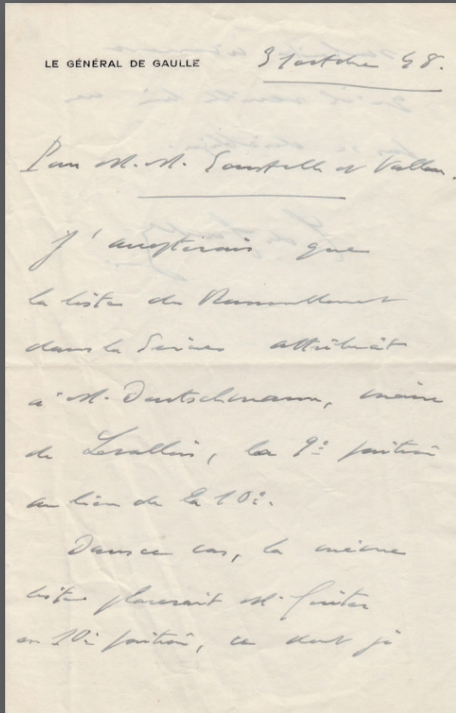 LE GÉNÉRAL DE GAULLE
3 octobre 48.
Pour M.M. Soustelle et Vallon.
J'accepterais que
la liste du Rassemblement
dans la Seine attribuât
à M. Deutschmann, maire
de Levallois, la 9è position
au lieu de la 10è.
Dans ce cas, la même
liste placerait M.
en 10è position, ce dont je